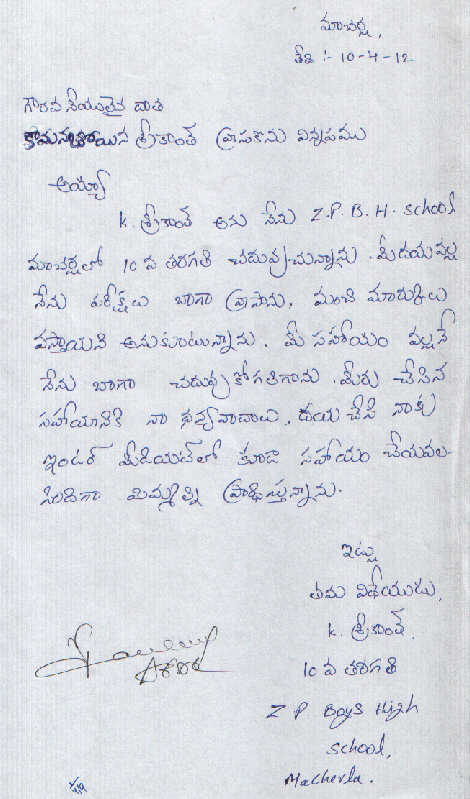 మాచర్ల,
తేది :- 10-4-12
గౌరవనీయులైన దాత
కామనబోయిన శ్రీకాంత్ వ్రాసుకొను విన్నపము
అయ్యా
K. శ్రీకాంత్ అను నేను Z.P.B.H. school
మాచర్లలో 10 వ తరగతి చదువుచున్నాను. మీదయవల్ల
నేను పరీక్షలు బాగా వ్రాసాను, మంచి మార్కులు
వస్తాయని అనుకుంటున్నాను. మీ సహాయం వల్లనే
నేను బాగా చదువుకోగలిగాను. మీరు చేసిన
సహాయానికి నా ధన్యవాదాలు, దయచేసి నాకు
ఇంటర్ మీడియట్‌లో కూడా సహాయం చేయవల-
సిందిగా మిమ్మల్ని ప్రార్థిస్తున్నాను.
ఇట్లు
తమ విధేయుడు,
K. శ్రీకాంత్.
10 వ తరగతి
Z P Boys High
school,
Macherla.